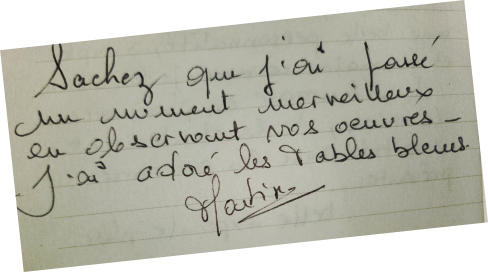 Sachez que j'ai passé
un moment merveilleux
en observant vos oeuvres -
J'ai adoré les Tables bleues.
Martin.